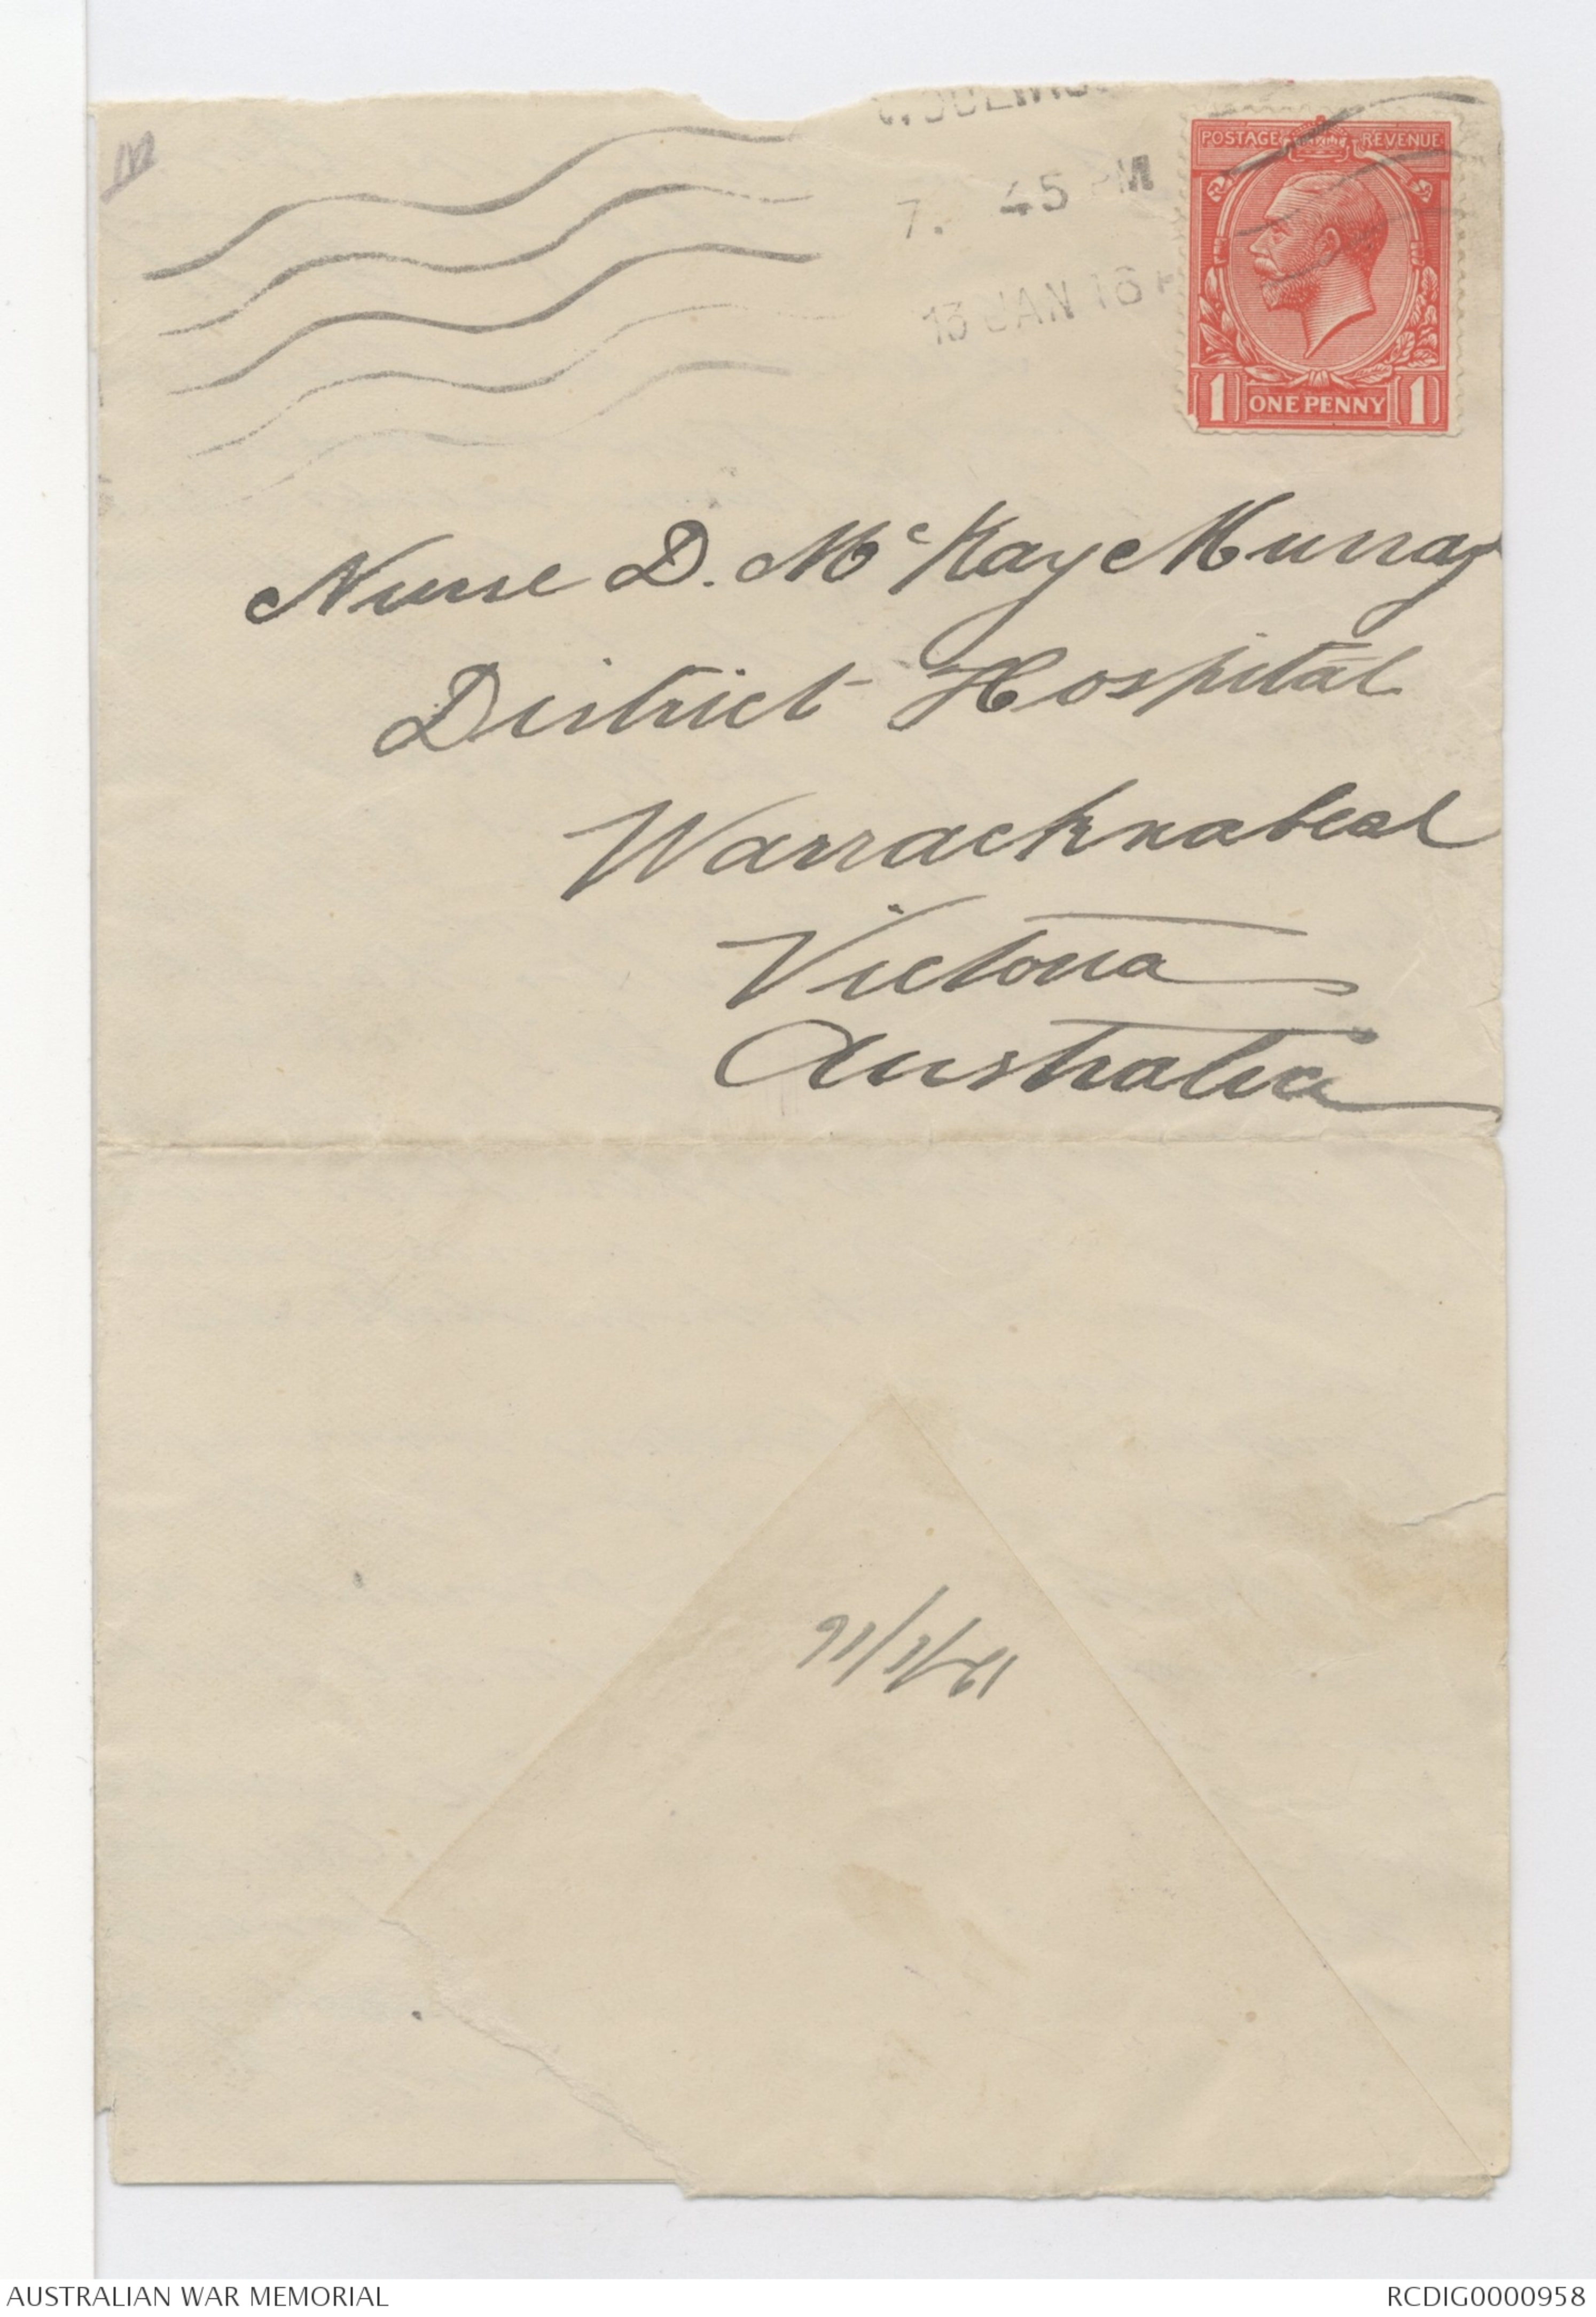 7. 45 PM
13 JAN 16
POSTAGE REVENUE
1 ONE PENNY 1
Nurse D. McKay Murray
District Hospital
Warracknabeal
Victoria
Australia
12/1/16
AUSTRALIAN WAR MEMORIAL
RCDIG0000958